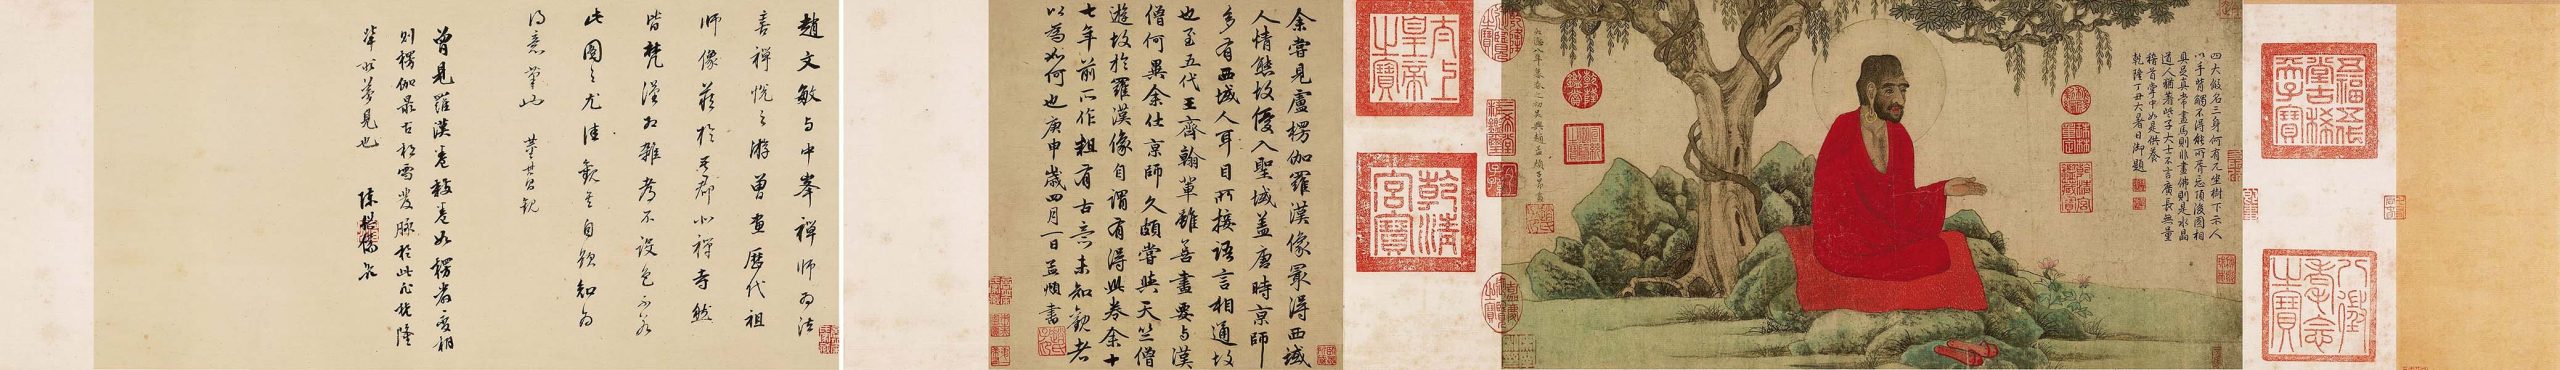 五福五代
堂古稀
天子寶
八徵
耄念
之寶
四大假名三身何有兀坐樹下示人
以手背觸不得能所胥忘頂後圓相
真是真常畫馬則非畫佛則是水晶
道人猶著些子大士不言廣長無量
稽首掌中如是供養
乾隆丁丑大暑日御題
大德八年暮春之初吳興趙孟頫子昂畫
太上
皇帝
之寶
乾清
宮寶
余嘗見盧楞伽羅漢像最得西域
人情態故優入聖域蓋唐時京師
多有西域人耳目所接語言相通故
也至五代王齊翰輩雖善畫要與漢
僧何異余仕京師久頗嘗與天竺僧
遊故於羅漢像自謂有得此卷余十
七年前所作粗有古意未知觀者
以為如何也庚申歲四月一日孟頫書
趙文敏与中峯禪師為法
喜禪悅之游曾畫歷代祖
師像藏於吾郡北禪寺然
皆梵漢相雜都不設色不若
此圖之尤佳觀其自題知為
得意筆也 董其昌觀
曾見羅漢卷數卷如楞嚴變相
則楞伽最古松雪發脈於此飛龍隆
準所兼見也